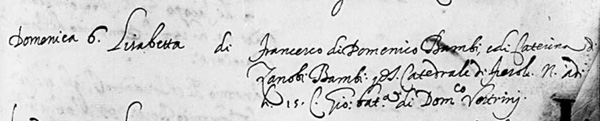 Domenica 6. Lisabetta di Francesco di Domenico Bambi, e di Caterina d
Zanobi Bambi: pop. Catedrale di Fiesole. N. adi
h. 15. C. Gio: bat.ª di Dom.co Vestrini